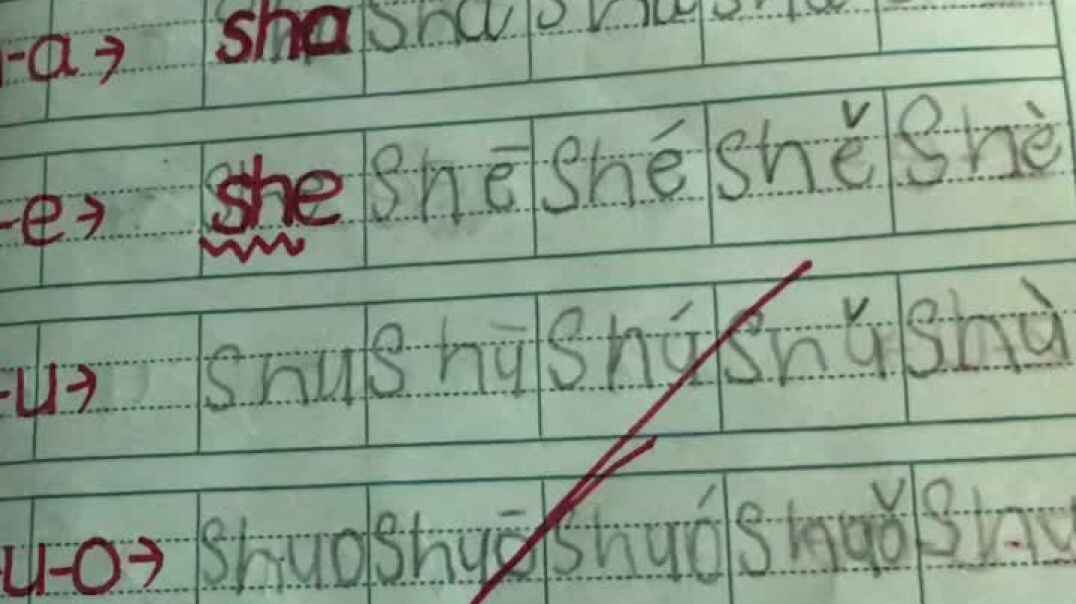 -a→ sha sha
-e→ she shē shé shě shè
-u→ shu shū shú shǔ shù
u-o→ shuo shuō shuó shuǒ